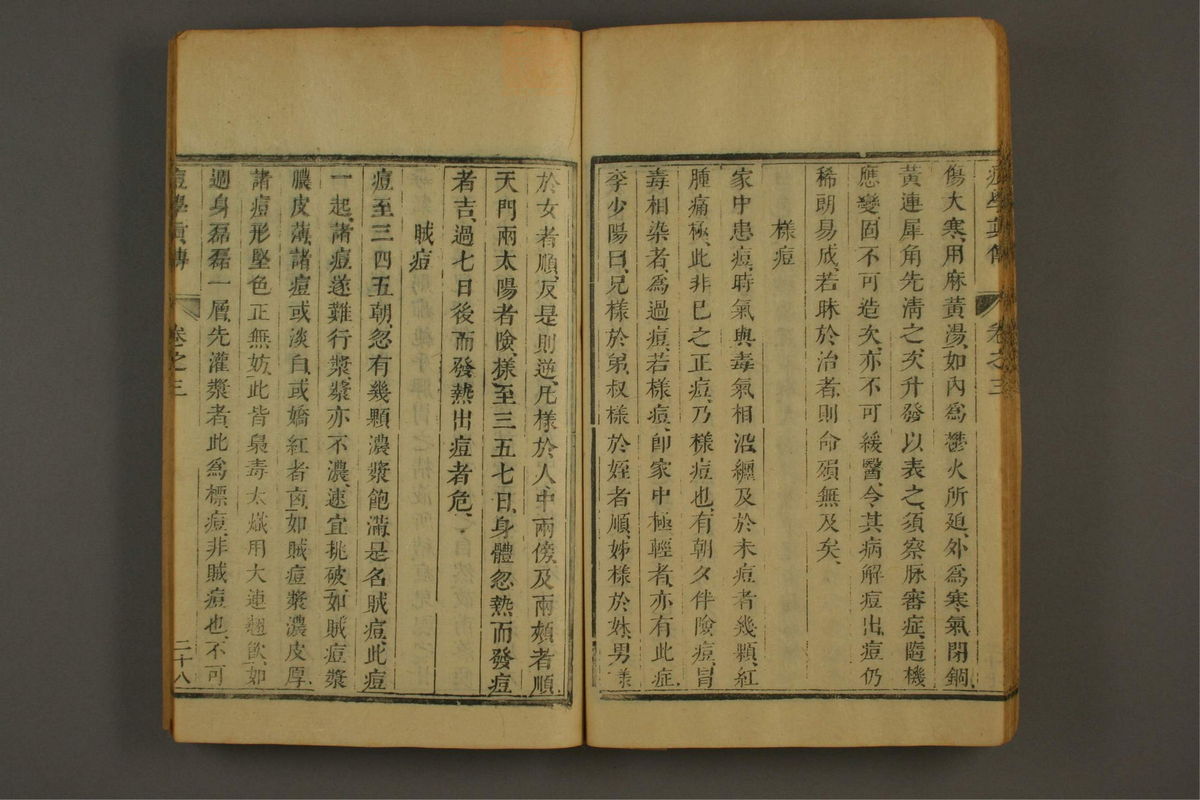 痘學眞傳 卷之三
傷大寒、用麻黃湯、如內爲鬱火所廹、外爲寒氣閉錮、
黃連犀角先淸之、次升發以表之、須察脉審症、隨機
應變、固不可造次、亦不可緩醫、令其病解痘出、痘仍
稀朗易成、若昧於治者、則命殞無及矣、
樣痘
家中患痘、時氣與毒氣相沿、纏及於未痘者幾顆、紅
腫痛極、此非已之正痘、乃樣痘也、有朝夕伴險痘、冐
毒相染者、爲過痘、若樣痘、卽家中極輕者、亦有此症
李少陽曰、兄樣於弟、叔樣於姪者順、姊樣於妹、男樣
於女者順、反是則逆、凡樣於人中兩傍、及兩頰者順
天門兩太陽者險、樣至三五七日、身體忽熱而發痘
者吉、過七日後而發熱出痘者危、
賊痘
痘至三四五朝、忽有幾顆濃漿飽滿、是名賊痘、此痘
一起、諸痘遂難行漿、漿亦不濃、速宜挑破、如賊痘漿
膿皮薄、諸痘或淡白、或嬌紅者凶、如賊痘漿濃皮厚、
諸痘形堅色正無妨、此皆梟毒太熾、用大連翹飮、如
週身磊磊一層、先灌漿者、此爲標痘、非賊痘也、不可
痘學眞傳 卷之三 二十八